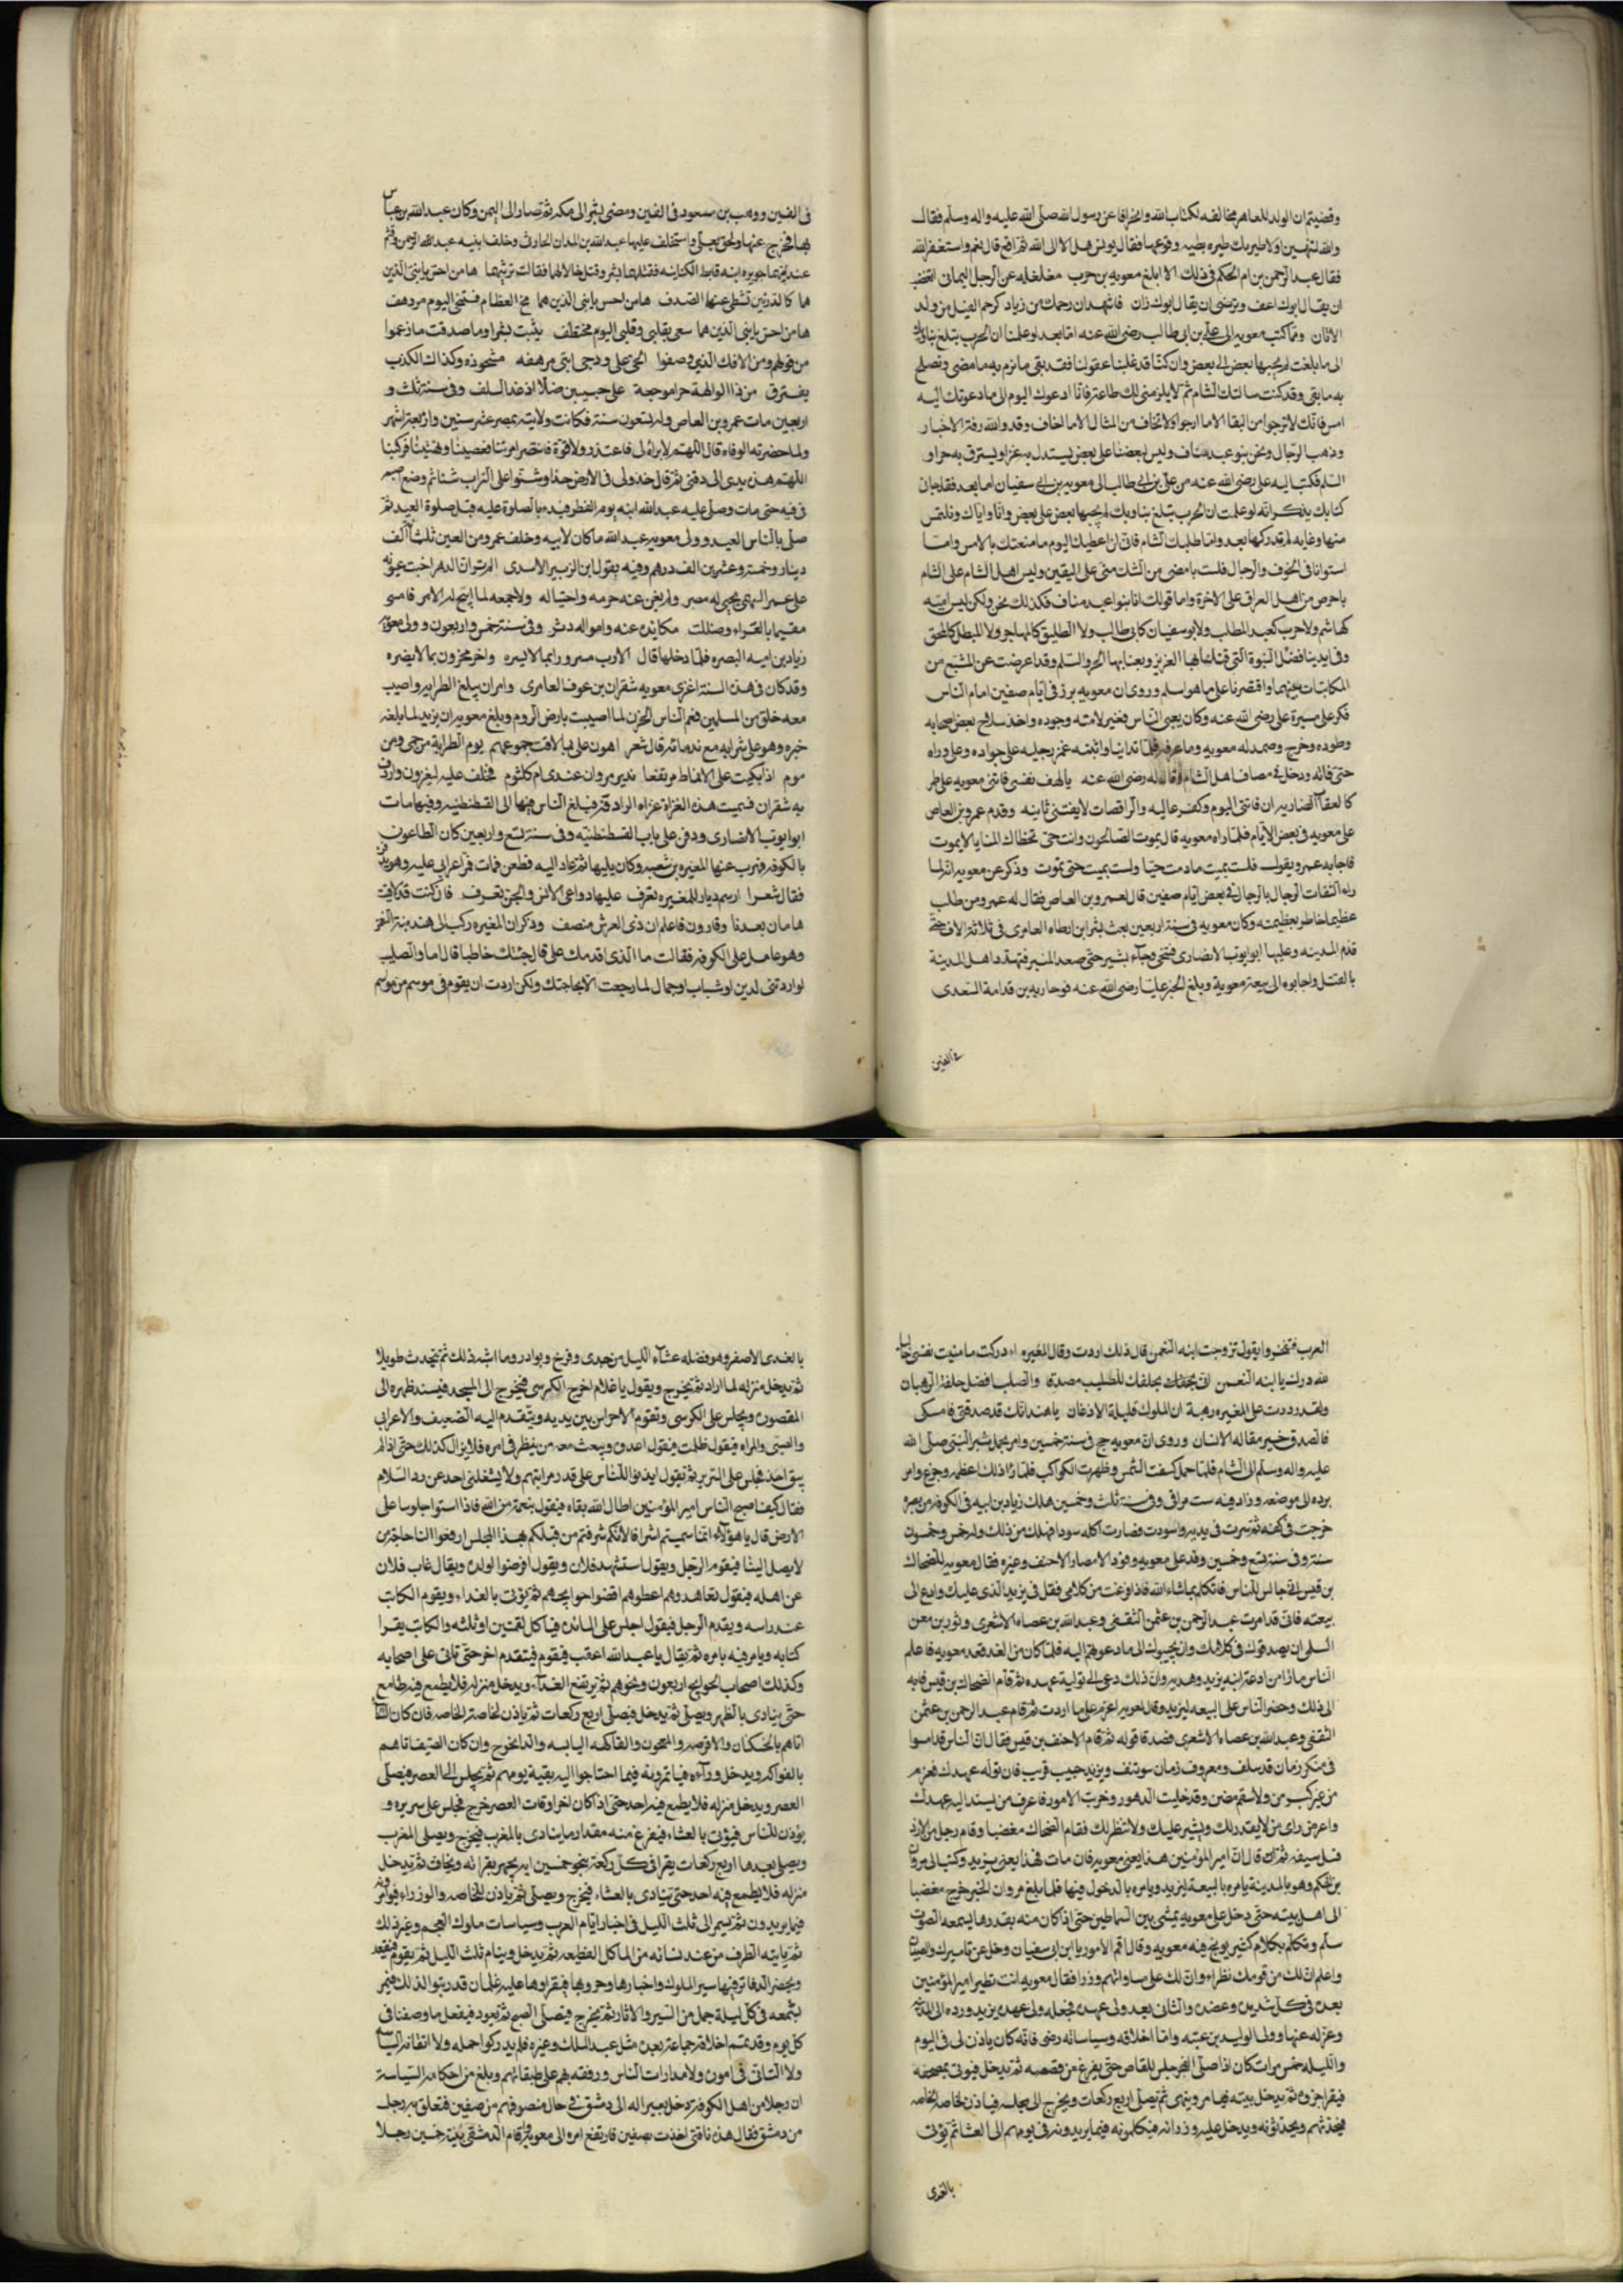 وقضيتم ان الولد للعاهر مخالفه لكتاب الله وانحرافا عن رسول الله صلى الله عليه واله وسلم فقال
والله لتنتهين اولاطيرنك طيره بطيه وقوعها فقال يونس هل الا الى الله ثم اقع قال نعم واستغفر الله
فقال عبد الرحمن بن ام الحكم في ذلك الا ابلغ معويه بن حرب مغلغله عن الرجل اليماني اتغضب
ان يقال ابوك عف وترضى ان يقال ابوك زان فاشهد ان رحمك من زياد كرحم الفيل من ولد
الاتان ومما كتب معويه الى علي بن ابي طالب رضى الله عنه اما بعد لو علمنا ان الحرب تبلغ بنا وبك
الى ما بلغت لم يجنها بعض الى بعض وان كنا قد غلبنا عقولنا فقد بقى ما نرم به ما مضى ونصلح
به ما بقى وقد كنت سالتك الشام ثم لا يلزمنى لك طاعة فانا ادعوك اليوم الى ما دعوتك اليه
امس فانك لا ترجوا من البقا الا ما ارجوا ولا تخاف من القتال الا ما اخاف وقد والله رقة الاخبار
وذهب الرجال ونحن بنو عبد مناف وليس لبعضنا على بعض يستدل به عزا ويسترق به حر او
السلم فكتب اليه على رضى الله عنه من على بن ابي طالب الى معويه بن ابي سفيان اما بعد فقد جان
كتابك يذكر انه لو علمت ان الحرب تبلغ بنا وبك لم يجنها بعض على بعض وانا واياك نلتمس
منها وغايه لم ندركها بعد واما طلبك الشام فانى لن اعطيك اليوم ما منعتك بالامس واما
استوانا في الخوف والرجال فلست بامضى من الشك منى على اليقين وليس اهل الشام على الشام
باحرص من اهل العراق على الاخرة واما قولك انا بنو عبد مناف فكذلك نحن ولكن ليس اميه
كهاشم ولا حرب كعبد المطلب ولا بو سفيان كابى طالب ولا الطليق كالمهاجر ولا المبطل كالمحق
وفى ايدينا فضل النبوة التى قتلنا بها العزيز وبعنا بها الحر والسلم وقد اعرضت عن المشبع من
المكاتبات بينهما واقتصرنا على ما هو اسلم وروى ان معويه برز فى ايام صفين امام الناس
فكر على ميسرة على رضى الله عنه وكان يعبى الناس فغير لامته وجوده واخذ سلاح بعض اصحابه
وطوده وخرج وصمد له معويه وما عرفه فلما تدانيا واثبته غمز برجليه على جواده وعلى وراه
حتى فاته ودخل فى مصاف اهل الشام وقال له رضى الله عنه يا لهف نفسى فاتنى معويه على طمر
كالعقاب الضاريه ان فاتنى اليوم وكفر عاليه والراقصات لا يفتنى ثانيه وقدم عمرو بن العاص
على معويه فى بعض الايام فلما راه معويه قال يموت الصالحون وانت حى تخطاك المنايا لا يموت
فاجابه عمرو يقول فلست بميت ما دمت حيا ولست بميت حتى تموت وذكر عن معويه انه لما
راه التفات الرجال بالرجال فى بعض ايام صفين قال لعمرو بن العاص فقال له عمرو من طلب
عظيما خاطر بعظيمته وكان معويه فى سنة اربعين بعث بشر ابن ارطاه العامرى فى ثلاثة الاف حتى
قدم المدينه وعليها ابو ايوب الانصارى فتنحى وجاء بشير حتى صعد المنبر فتهدد اهل المدينة
بالقتل واجابوه الى بيعة معوية وبلغ الخبر عليا رضى الله عنه فوجه حاريه بن قدامة السعدى
فى الفين
فى الفين ووهب بن مسعود فى الفين ومضى بشر الى مكه ثم صار الى اليمن وكان عبد الله بن عباس
بها فخرج عنها ولحق بعلى واستخلف عليها عبد الله بن المدان الحارثى وخلف ابنيه عبد الرحمن وقثم
عند امهما جويره ابنه قارظ الكنانيه فقتلهما بشر وقتل خالا لهما فقالت ترثيهما ها من احس بابنى الذين
هما كالدرتين تشظى عنها الصدف ها من احس بابنى الذين هما مخ العظام فمخى اليوم مزدهف
ها من احس بابنى الذين هما سمعى وقلبى وقلبى اليوم مختطف نبئت بشرا وما صدقت ما زعموا
من قولهم ومن الافك الذى وصفوا انحى على ودجى ابنى مرهفه مشحوذه وكذاك الكذب
يقترف من ذا لوالهة حرا موجعة على حبيبين ضلا اذ غدا السلف وفى سنة ثلث و
اربعين مات عمرو بن العاص وله تسعون سنة فكانت ولايته بمصر عشر سنين واربعة اشهر
ولما حضرته الوفاه قال اللهم لا براة لى فاعتذر ولا قوة فانتصر امرتنا فعصينا ونهيتنا فركبنا
اللهم هذه يدى الى ذقنى ثم قال خدوا لى فى الارض خدا وشنوا على التراب شنا ثم وضع اصبعه
فى فيه حتى مات وصلى عليه عبد الله ابنه يوم الفطر فبدء بالصلوة عليه قبل صلوة العيد ثم
صلى بالناس العيد وولى معويه عبد الله ما كان لابيه وخلف عمرو من العين ثلثمائة الف
دينار وخمسة وعشرين الف درهم وفيه يقول ابن الزبير الاسدى الم تر ان الدهر اخنت عيونه
على عمرو السهمى يجبى له مصر ولم يغن عنه حزمه واحتياله ولا جمعه لما اتيح له الامر فامسى
مقيما بالعراء وضللت مكايده عنه وامواله دثر وفى سنة خمس واربعون وولى معويه
زياد بن ابيه البصره فلما دخلها قال الا رب مسرور بما لا يسره واخر محزون بما لا يضره
وقد كان فى هذه السنة اغزى معويه شقران بن عوف العامرى وامران يبلغ الطرابه واصيب
معه خلق من المسلمين فعم الناس الحزن لما اصيبت بارض الروم وبلغ معويه ان يزيد لما بلغه
خبره وهو على شرابه مع ندمائه قال شعر اهون على بما لاقت جموعهم يوم الطرابة من حمى ومن
موم اذا اتكيت على الانماط مرتفعا بدير مروان عندى ام كلثوم فحلف عليه ليغزون واردف
به شقران فسميت هذه الغزاة غزاه الرادفه وبلغ الناس فيها الى القسطنطنيه وفيها مات
ابو ايوب الانصارى ودفن على باب القسطنطنيه وفى سنة تسع واربعين كان الطاعون
بالكوفه فهرب عنها المغيره بن شعبه وكان يليها ثم عاد اليه فطعن فمات فمر اعرابى عليه وهو يدفن
فقال شعرا ارسم ديار للمغيره تعرف عليها دواعى الانس والجن تعرف فان كنت قد لاقيت
هامان بعدنا وقارون فاعلم ان ذى العرش منصف وذكر ان المغيره ركب الى هند بنة النعمن
وهو عامل على الكوفه فقالت ما الذى اقدمك على قال جئتك خاطبا قال اما والصليب
لو اردتنى لدين او شباب او جمال لما رجعت الا بحاجتك ولكن اردت ان يقوم فى موسم من مواسم
العرب فتفخر وا يقول تزوجت ابنه النعمن قال ذلك اردت وقال المغيره ادركت ما منيت نفسى خاليا
لله درك يا ابنه النعمن انى بحلفك للصليب مصدق والصلب افضل حلفة الرهبان
ولقد رددت على المغيره رهبة ان الملوك قليلة الاذعان يا هند انك قد صدقتى فامسكى
فالصدق خير مقاله الانسان وروى ان معويه حج فى سنة خمسين وامر بحمل منبر النبى صلى الله
عليه واله وسلم الى الشام فلما حمل كسفت الشمس وظهرت الكواكب فلما راؤا ذلك اعظمه وجزع وامر
برده الى موضعه وزاد فيه ست مراقى وفى سنة ثلث وخمسين هلك زياد بن ابيه فى الكوفه من بثره
خرجت فى كفه ثم سرت فى يديه واسودت فصارت اكله سودا فهلك من ذلك وله خمس وخمسون
سنة وفى سنة تسع وخمسين وفد على معويه وفود الامصار الاحنف وغيره فقال معويه للضحاك
بن قيس انى جالس للناس فاتكلم بما شاء الله فاذا فرغت من كلامى فقل فى يزيد الذى عليك وادع الى
بيعته فانى قد امرت عبد الرحمن بن عثمن الثقفى وعبد الله بن عصاه الاشعرى وثور بن معن
السلمى ان يصدقوك فى كلامك وان يجيبوك الى ما دعوتهم اليه فلما كان من الغد قعد معويه فاعلم
الناس ماذا من ادعا ابنه يزيد وهديه وان ذلك دعى الى توليه عهده ثم قام الضحاك بن قيس فاجابه
الى ذلك وحضر الناس على البيعه ليزيد وقال لمعويه اعزم على ما اردت ثم قام عبد الرحمن بن عثمن
الثقفى وعبد الله بن عصاه الاشعرى فصدقا قوله ثم قام الاحنف بن قيس فقال ان الناس قد امسوا
فى منكر زمان قد سلف ومعروف زمان مؤتنف ويزيد حبيب قريب فان توله عهدك فعزم
من غير كبر من ولا سقم مضن وقد حلبت الدهور وجربت الامور فاعرف من تسند اليه عهدك
واعرض راى من لا يقدر لك ويشير عليك ولا ينظر لك فقام الضحاك مغضبا وقام رجل من الازد
فسل سيفه ثم قال ان امير المؤمنين هذا يعنى معويه فان مات فهذا يعنى يزيد وكتب الى مروان
بن الحكم وهو بالمدينة يامره بالبيعة ليزيد ويامره بالدخول فيها فلما بلغ مروان الخبر خرج مغضبا
الى اهل بيته حتى دخل على معويه يمشى بين السماطين حتى اذا كان منه بقدر ما يسمعه الصوت
سلم وتكلم بكلام كثير يوبخ فيه معويه وقال اقم الامور يا ابن ابى سفيان وخل عن تاميرك الصبيان
واعلم ان لك من قومك نظراء وان لك على مناواتهم وزرا فقال معويه انت نظير امير المؤمنين
بعده فى كل شديده وعضده والثانى بعد ولى عهده فجعله ولى عهد يزيد ورده الى المدينة
وعزله عنها وولى الوليد بن عتبه واما اخلاقه وسياساته رضى فانه كان ياذن لى فى اليوم
والليله خمس مرات كان اذا صلى الفجر جلس للقاص حتى يفرغ من قصصه ثم يدخل فيوتى بمصحفه
فيقرا جزوه ثم يدخل بيته فيامر وينهى ثم يصلى اربع ركعات ويخرج الى مجلسه فياذن لخاصه الخاصه
فيحدثهم ويحدثونه ويدخل عليه وزرائه فيكلمونه فيما يريدونه فى يومهم الى العشا ثم يؤتى
بالغدى
بالغدى الاصفر وهو فضله عشاء الليل من جدى وفرخ وبوادر وما اشبه ذلك ثم يتحدث طويلا
ثم يدخل منزله لما اراد ثم يخرج ويقول يا غلام اخرج الكرسى فيخرج الى المسجد فيسند ظهره الى
المقصوره ويجلس على الكرسى وتقوم الاحراس بين يديه ويتقدم اليه الضعيف والاعرابى
والصبى والمراه فيقول ظلمت فيقول اعدوه ويبعث معه من ينظر فى امره فلا يزال كذلك حتى اذا لم
يبق احد فجلس على السرير ثم يقول ايذنوا للناس على قدر مراتبهم ولا يشغلنى احد عن رد السلام
فقال كيف اصبح الناس امير المؤمنين اطال الله بقاه فيقول بنعمة من الله فاذا استوا جلوسا على
الارض قال يا هؤلاء انما سميتم اشرافا لانكم شرفتم من قبلكم بهذا المجلس ارفعوا الينا حاجة من
لا يصل الينا فيقوم الرجل ويقول استشهد فلان ويقول افرضوا لولده ويقال غاب فلان
عن اهله فيقول تعاهدوهم اعطوهم اقضوا حوايجهم ثم يؤتى بالغداء ويقوم الكاتب
عند راسه ويقدم الرجل فيقول اجلس على المائده فياكل لقمتين او ثلثه والكاتب يقرا
كتابه ويامر فيه بامره ثم يقال يا عبد الله اعقب فيقوم فيتقدم اخر حتى تاتى على اصحابه
وكذلك اصحاب الحوايج اربعون ونحوهم ثم يرتفع الغداء ويدخل منزله فلا يطمع فيه طامع
حتى ينادى بالظهر ويصلى ثم يدخل فيصلى اربع ركعات ثم ياذن لخاصة الخاصه فان كان الشتا
اتاهم بالخشكنان والاقرصه والمعجون والفاكهه اليابسه والدابخوج وان كان الصيف اتاهم
بالفواكه ويدخل وزرآءه فيامرونه فيما احتاجوا اليه بقية يومهم ثم يجلس الى العصر فيصلى
العصر ويدخل منزله فلا يطمع فيه احد حتى اذا كان اخر اوقات العصر خرج فجلس على سريره و
يؤذن للناس فيؤتى بالعشاء فيفرغ منه مقدار ما ينادى بالمغرب فيخرج ويصلى المغرب
ويصلى بعدها اربع ركعات يقرا فى كل ركعة نحو خمسين ايه يجهر بقرائه ويخافت ثم يدخل
منزله فلا يطمع فيه احد حتى ينادى بالعشاء فيخرج ويصلى ثم ياذن للخاصه والوزراء فيوامرونه
فيما يريدون ثم يسمر الى ثلث الليل فى اخبار ايام العرب وسياسات ملوك العجم وغير ذلك
ثم ياتيه الطرف من عند نسائه من الماكل الفطيعه ثم يدخل وينام ثلث الليل ثم يقوم فيقعد
ويحضر الدفاتر فيها سير الملوك واخبارها وحروبها فيقراوها عليه غلمان قد ربتوا لذلك فيمر
بسمعه فى كل ليلة جمل من السير والاثار ثم يخرج فيصلى الصبح ثم يعود فيفعل ما وصفنا فى
كل يوم وقد تمم اخلاقه جماعة بعده مثل عبد الملك وغيره فلم يدركوا حلمه ولا اتقانه السياسة
ولا التاتى فى اموره ولا مدارات الناس ورفقه بهم على طبقاتهم وبلغ من احكامه السياسة
ان رجلا من اهل الكوفة دخل ببعير له الى دمشق فى حال منصرفهم من صفين فتعلق به رجل
من دمشق فقال هذه ناقتى اخذت بصفين فارتفع امره الى معويه واقام الدمشقى بينة خمسين رجلا